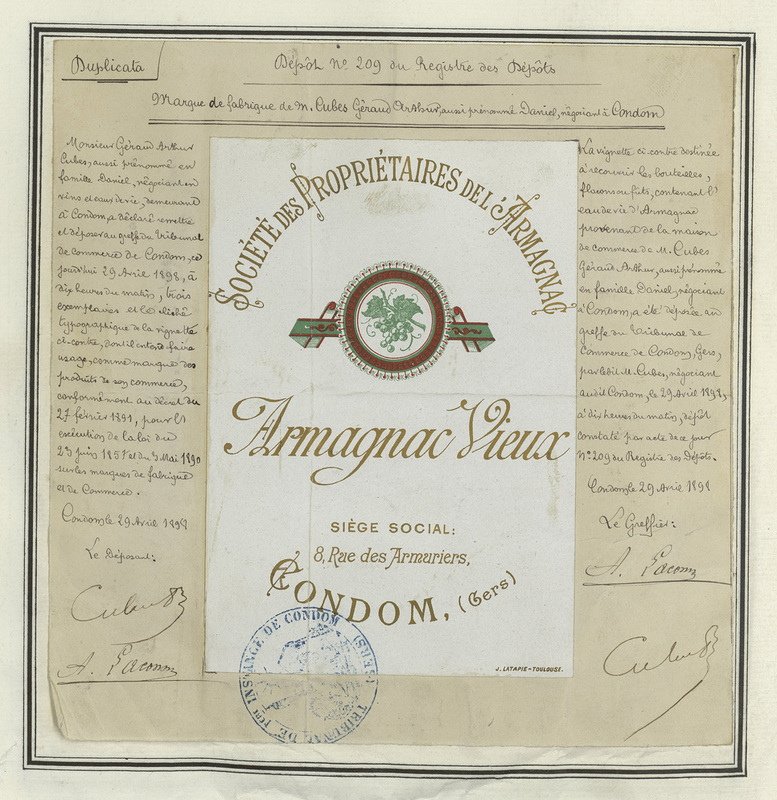 Duplicata
Dépôt N° 209 du Registre des Dépôts
Marque de fabrique de M. Cubes Géraud Arthur, aussi prénommé Daniel, négociant à Condom
Monsieur Géraud Arthur
Cubes, aussi prénommé en
famille Daniel, négociant en
vins et eaux de vie, demeurant
à Condom, a déclaré remettre
et déposer au greffe du Tribunal
de commerce de Condom, ce
jourd'hui 29 Avril 1898, à
dix heures du matin, trois
exemplaires et le cliché
typographique de la vignette
ci-contre, dont il entend faire
usage, comme marque des
produits de son commerce,
conformément au décret du
27 février 1891, pour l'
exécution de la loi du
23 juin 1857 et du 3 Mai 1890
sur les marques de fabrique
et de Commerce.
Condom, le 29 Avril 1898
Le Déposant:
SOCIÉTÉ DES PROPRIÉTAIRES DE L'ARMAGNAC
Armagnac Vieux
SIÈGE SOCIAL:
8, Rue des Armuriers,
CONDOM, (Gers)
J. LATAPIE - TOULOUSE.
TRIBUNAL DE 1ère INSTANCE DE CONDOM (GERS)
La vignette ci-contre destinée
à recouvrir les bouteilles,
flacons ou fûts, contenant l'
eau de vie d'Armagnac
provenant de la maison
de commerce de M. Cubes
Géraud Arthur, aussi prénommé
en famille Daniel, négociant
à Condom, a été déposée au
greffe du Tribunal de
Commerce de Condom, Gers,
par ledit M. Cubes, négociant
audit Condom, le 29 Avril 1898,
à dix heures du matin, dépôt
constaté par acte de ce jour
N° 209 du Registre des Dépôts.
Condom, le 29 Avril 1898
Le Greffier: